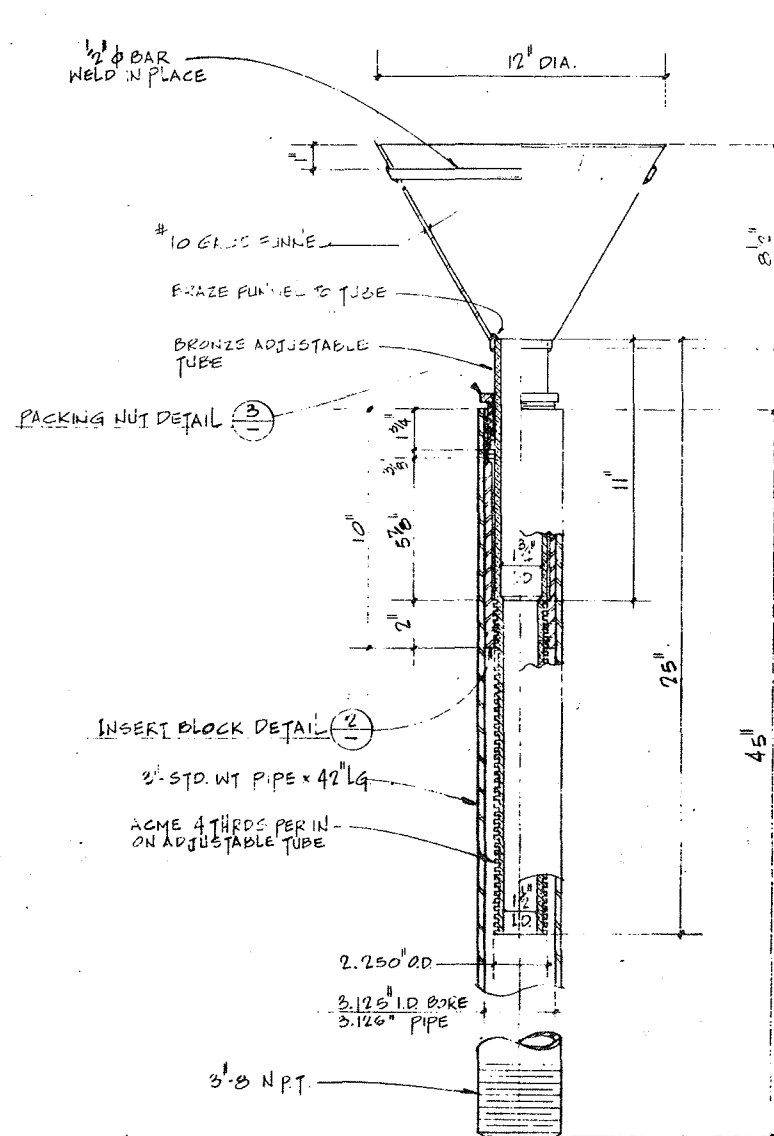 1/2" φ BAR
WELD IN PLACE
12" DIA.
1"
8 1/2"
BRAZE FUNNEL TO TUBE
BRONZE ADJUSTABLE
TUBE
PACKING NUT DETAIL 3
1 3/4"
11"
10"
5 7/8"
2"
25"
45"
INSERT BLOCK DETAIL 2
3"-STD. WT PIPE × 42" LG
ACME 4 THRDS PER IN
ON ADJUSTABLE TUBE
2.250" O.D.
3.125" I.D. BORE
3.126" PIPE
3"-8 N.P.T.